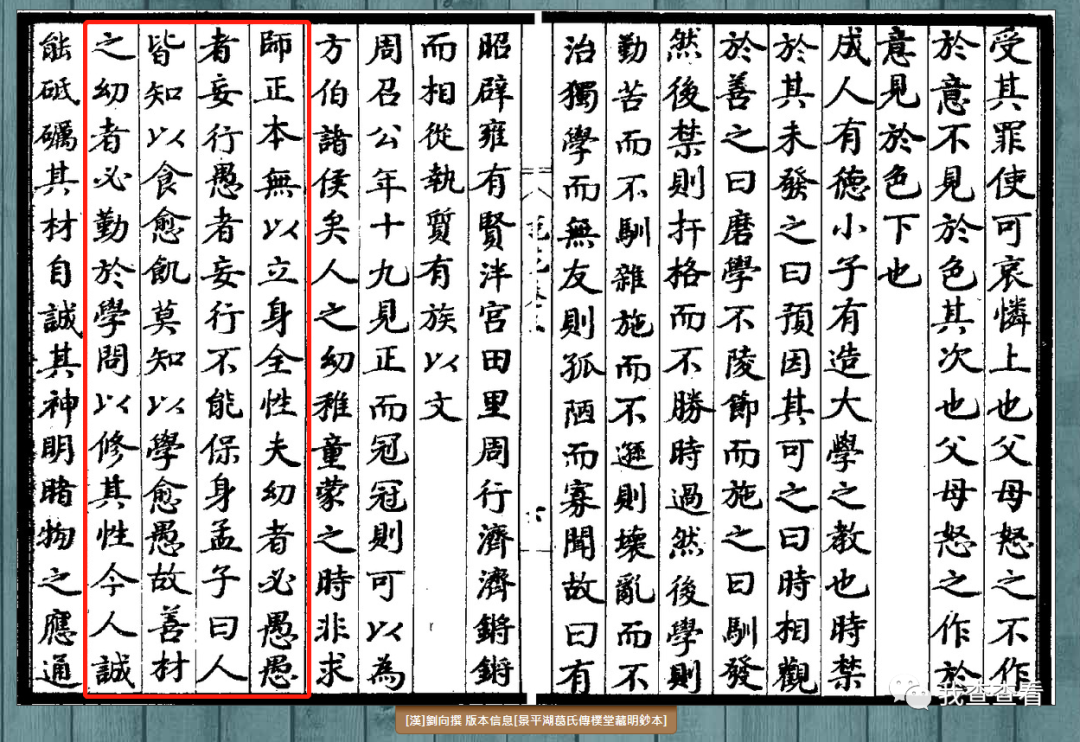 受其罪使可哀憐上也父母怒之不作
於意不見於色其次也父母怒之作於
意見於色下也
成人有德小子有造大學之教也時禁
於其未發之曰預因其可之曰時相觀
於善之曰磨學不陵節而施之曰馴發
然後禁則扞格而不勝時過然後學則
勤苦而不馴雜施而不遜則壞亂而不
治獨學而無友則孤陋而寡聞故曰有
昭辟雍有賢泮宮田里周行濟濟鏘鏘
而相從執質有族以文
周召公年十九見正而冠冠則可以為
方伯諸侯矣人之幼稚童蒙之時非求
師正本無以立身全性夫幼者必愚愚
者妄行愚者妄行不能保身孟子曰人
皆知以食愈飢莫知以學愈愚故善材
之幼者必勤於學問以修其性今人誠
能砥礪其材自誠其神明睹物之應通
我查查看
[漢]劉向撰 版本信息[景平湖葛氏傳樸堂藏明鈔本]